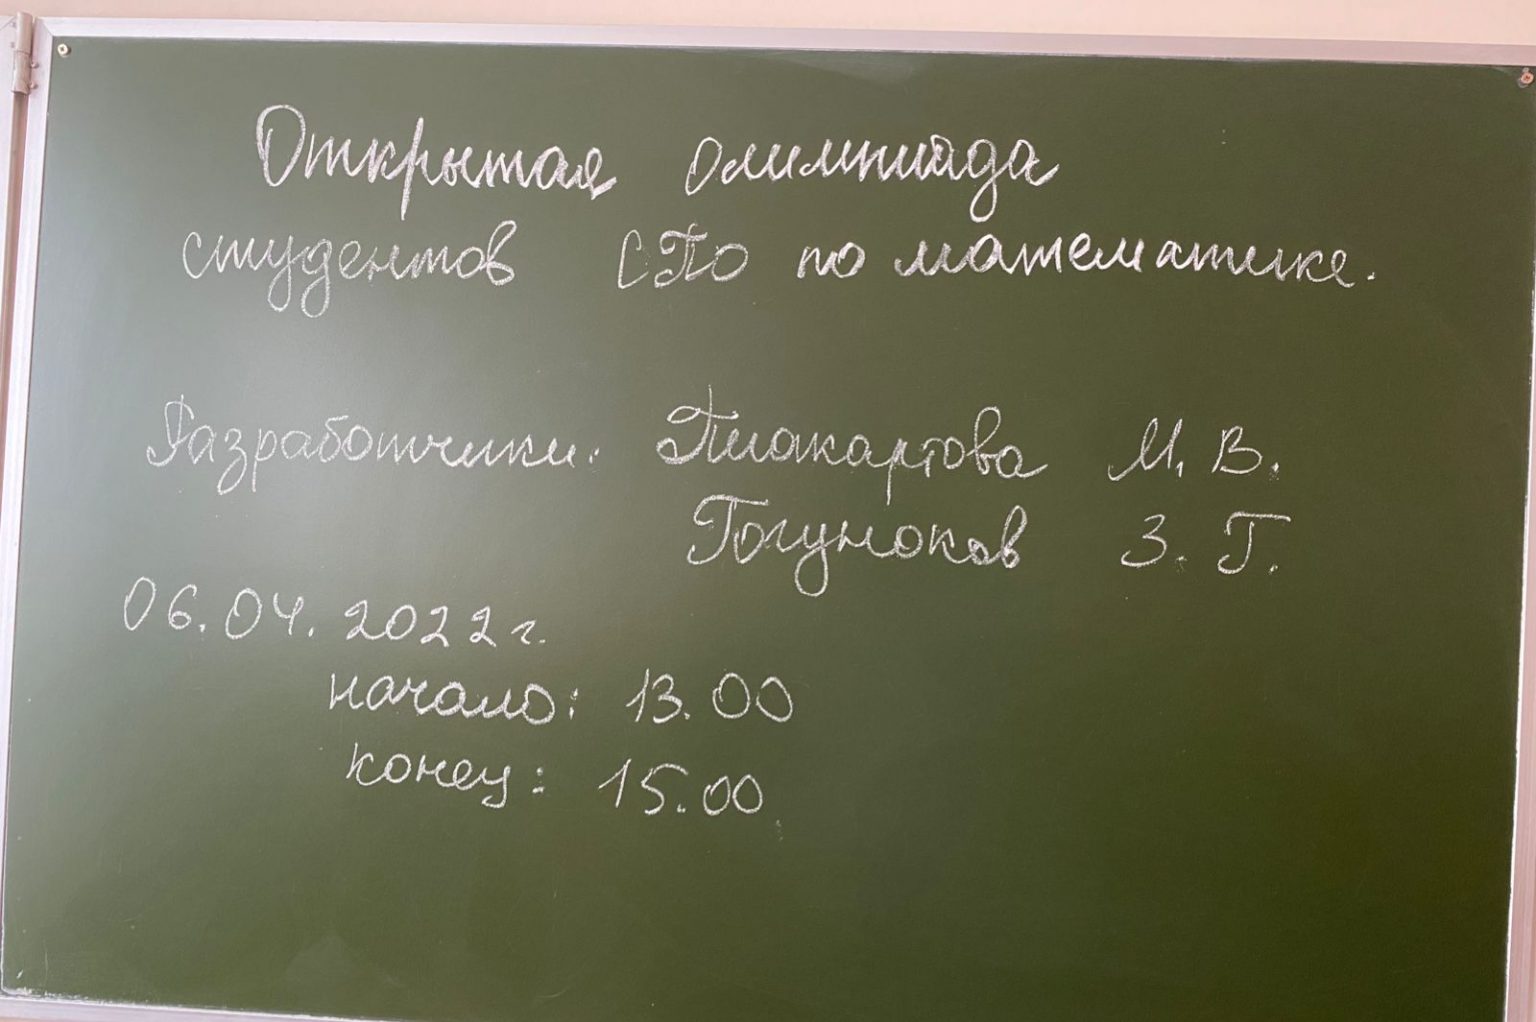 Открытая олимпиада
студентов СПО по математике.
Разработчики: М. В.
Гогуноков З. Г.
06.04.2022 г.
начало: 13.00
конец: 15.00